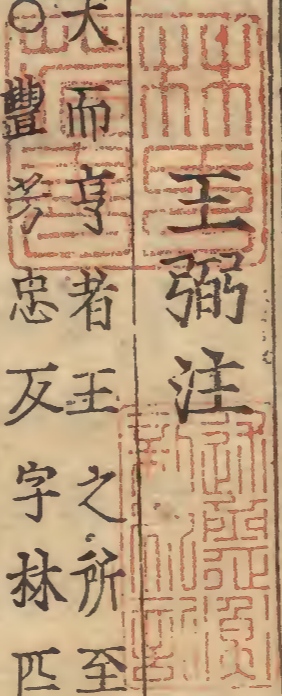 王弼注
大而亨者王之所至
○豐芳忠反字林匹